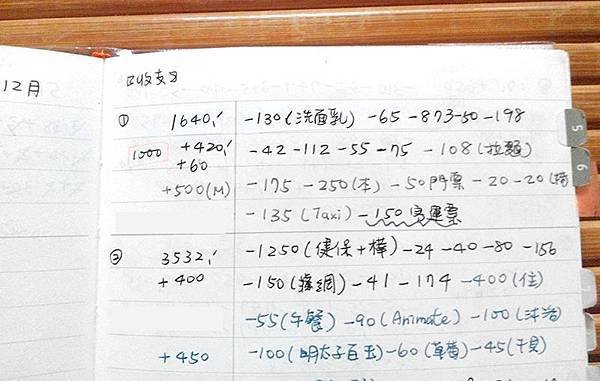 12月
收支
① 1640.- -130(洗面乳) -65 -873-50 -198
1000 +420.- -42 -112 -55 -75 -108(拉麵)
+60
+500(M) -175 -250(本) -50門票 -20-20
-135(Taxi) -150客運票
② 3532.- -1250(健保+樺) -24 -40 -80 -156
+400 -150 -41 -174 -400(住)
-55(午餐) -90(Animate) -100
+450 -100(明太子百玉) -60(草莓) -45
5
6